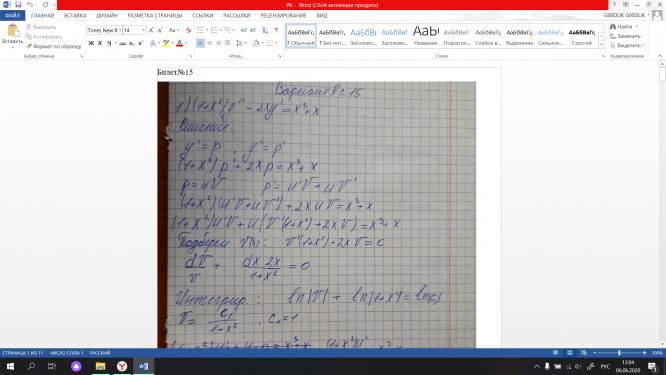 РК - Word (Сбой активации продукта)
ФАЙЛ ГЛАВНАЯ ВСТАВКА ДИЗАЙН РАЗМЕТКА СТРАНИЦЫ ССЫЛКИ РАССЫЛКИ РЕЦЕНЗИРОВАНИЕ ВИД
GEEDLIK GEEDLIK
Вырезать
Копировать
Формат по образцу
Вставить
Буфер обмена
Times New R 14
Шрифт
Абзац
АаБбВвГг АаБбВвГг АаБбВ АаБбВвГ АаБ АаБбВвГ АаБбВвГг АаБбВвГг АаБбВвГг АаБбВвГг
¶ Обычный ¶ Без инт... Заголово... Заголово... Название Подзагол... Слабое в... Выделение Сильное... Строгий
Стили
Найти
Заменить
Выделить
Редактирование
Билет№15
Вариант №15
1) (1+x²)y'' + 2xy' = x³+x
Решение
y' = p, y'' = p'
(1+x²)p' + 2xp = x³+x
p = uV p' = u'V + uV'
(1+x²)(u'V+uV') + 2xuV = x³+x
(1+x²)u'V + u(V'(1+x²) + 2xV) = x³+x
Подберем V(x): V'(1+x²) + 2xV = 0
dV/V + dx 2x/1+x² = 0
Интегрир.: ln|V| + ln|1+x²| = ln|C₁|
V = C₁/1+x², C₁=1
СТРАНИЦА 1 ИЗ 11 ЧИСЛО СЛОВ: 1 РУССКИЙ
100%
РУС
13:04
06.06.2020